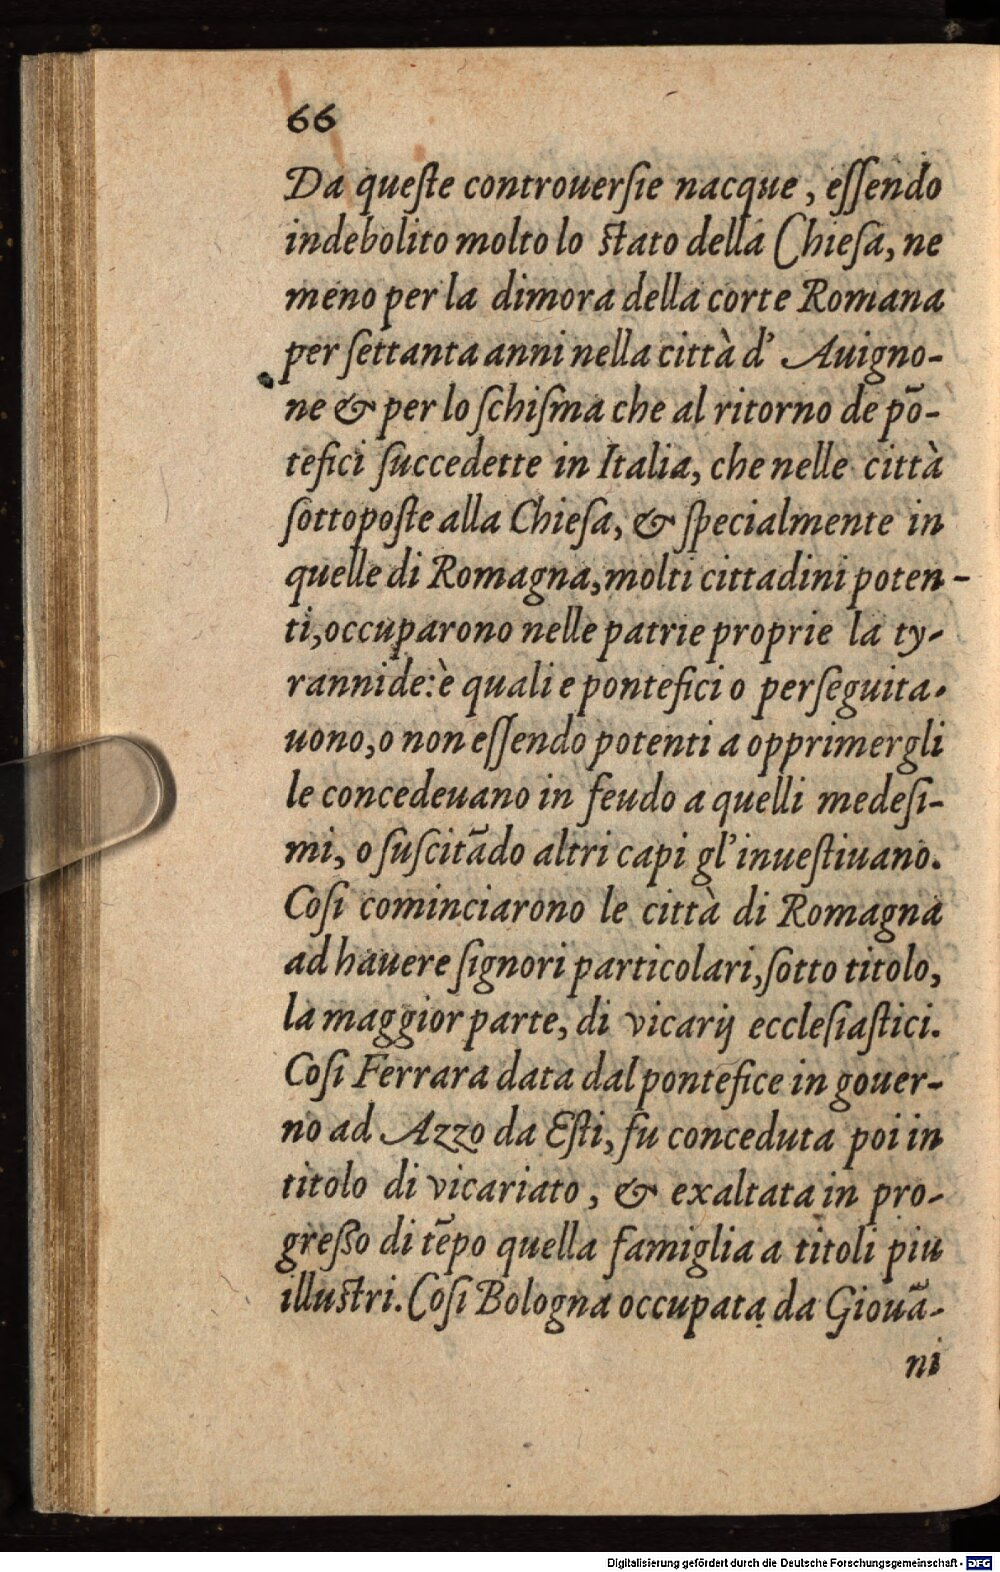 66
Da queſte controuerſie nacque, eſſendo
indebolito molto lo ſtato della Chieſa, ne
meno per la dimora della corte Romana
per ſettanta anni nella città d' Auigno-
ne & per lo ſchiſma che al ritorno de põ-
tefici ſuccedette in Italia, che nelle città
ſottopoſte alla Chieſa, & ſpecialmente in
quelle di Romagna, molti cittadini poten-
ti, occuparono nelle patrie proprie la ty-
rannide: è quali e pontefici o perſeguita-
uono, o non eſſendo potenti a opprimergli
le concedeuano in feudo a quelli medeſi-
mi, o ſuſcitãdo altri capi gl'inueſtiuano.
Coſi cominciarono le città di Romagna
ad hauere ſignori particolari, ſotto titolo,
la maggior parte, di vicarij eccleſiaſtici.
Coſi Ferrara data dal pontefice in gouer-
no ad Azzo da Eſti, fu conceduta poi in
titolo di vicariato, & exaltata in pro-
greßo di tẽpo quella famiglia a titoli piu
illuſtri. Coſi Bologna occupata da Giouã-
ni
Digitalisierung gefördert durch die Deutsche Forschungsgemeinschaft - DFG